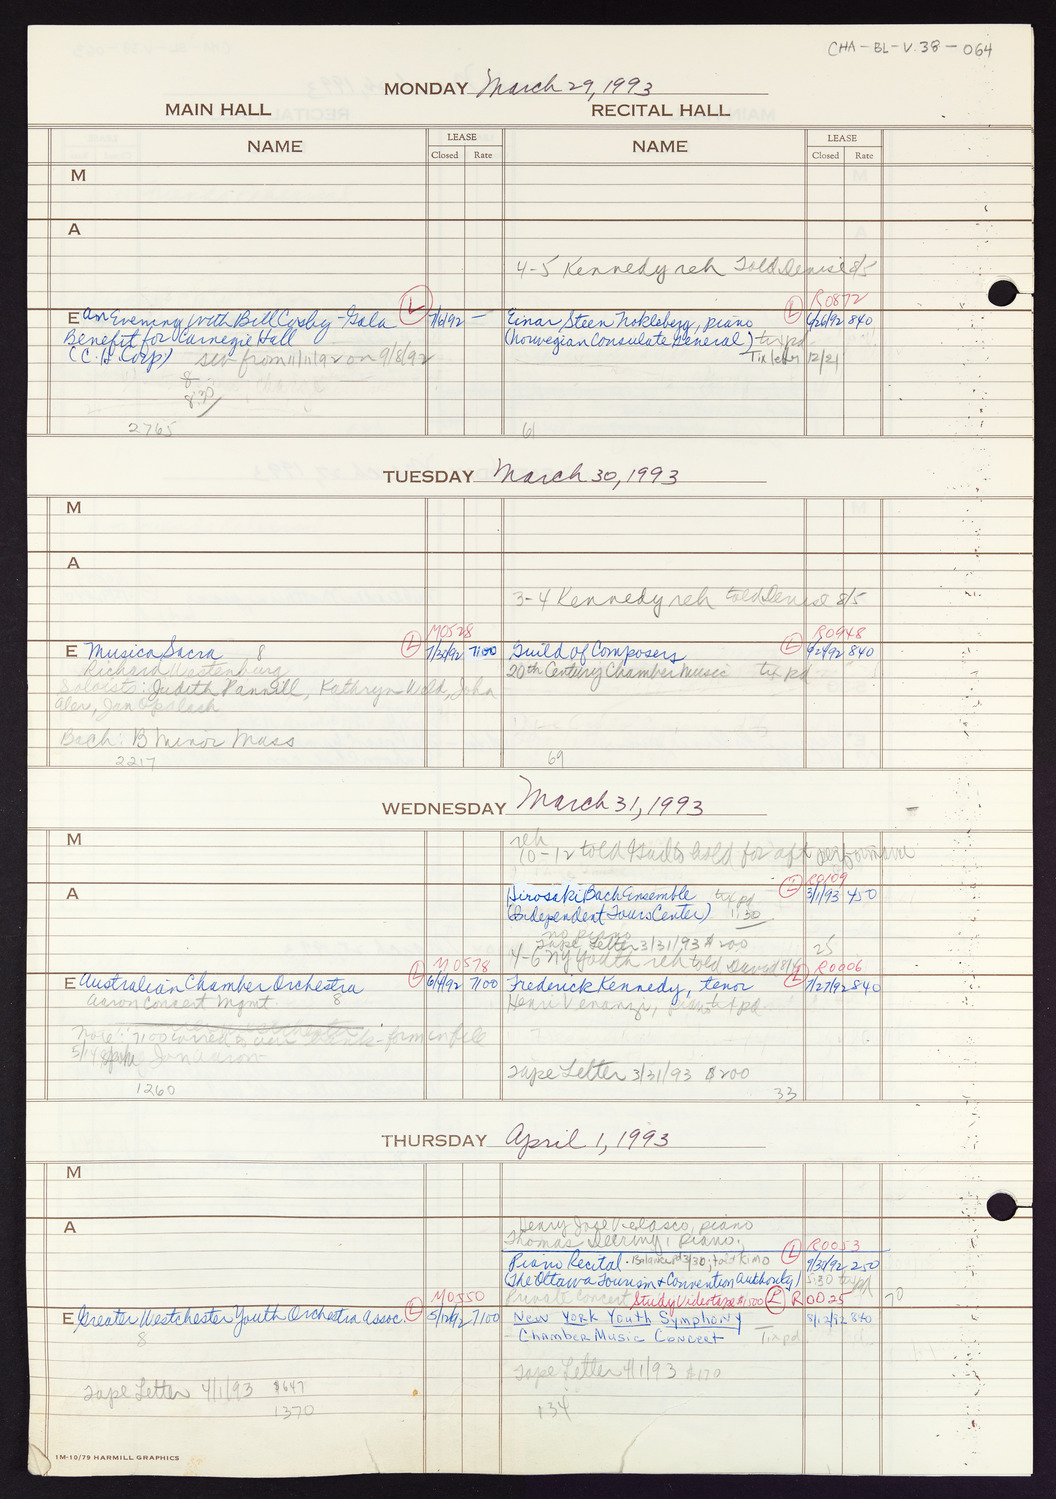 CHA-BL-V.38-064
MONDAY March 29, 1993
MAIN HALL RECITAL HALL
NAME LEASE NAME LEASE
Closed Rate Closed Rate
M
A
4-5 Kennedy reh Told Denise 8/5
R0872
E An Evening with Bill Cosby - Gala L 7/6/92 - Einar Steen Nokleberg, piano L 6/26/92 840
Benefit for Carnegie Hall (Norwegian Consulate General) tix pd
(C.H. Corp) sw from 11/11/92 on 9/8/92 Tix letter 12/21
8
8:30
2765 61
TUESDAY March 30, 1993
M
A
3-4 Kennedy reh told Denise 8/5
M0528 R0948
E Musica Sacra 8 L 7/30/92 7100 Guild of Composers L 840
Richard Westenburg 20th Century Chamber Music tix pd
Soloists: Judith Pannill, Kathryn John
Aler, Jan Opalach
Bach: B Minor Mass
2217 69
WEDNESDAY March 31, 1993
M reh
10-12 told hold for aft performance
R0109
A Hirosaki Bach Ensemble tix pd L 3/1/93 450
(Independent Tours Center) 1:30
no piano
Tape Letter 3/31/93 $200 25
4-6 NY Youth reh told David
M0578 R0006
E Australian Chamber Orchestra L 6/4/92 7100 Frederick Kennedy, tenor L 7/27/92 840
Aaron Concert Mgmt 8 Henri Venanzi, piano tix pd
Note: 7100 form in file
5/14 spoke Jon Aaron
Tape Letter 3/31/93 $200
1260 33
THURSDAY April 1, 1993
M
A Henry Jose Velasco, piano
Thomas Deering, piano
R0053
Piano Recital - Balance pd 3/30; told Kimo L 9/30/92 250
(The Ottawa Tourism & Convention Authority) 5:30 tix pd
Private Concert Study Videotape $1500 L R0025 70
M0550
E Greater Westchester Youth Orchestra Assoc. L 5/12/92 7100 New York Youth Symphony 5/12/92 840
8 - Chamber Music Concert Tix pd
Tape Letter 4/1/93 $170
Tape Letter 4/1/93 $647
1370 134
1M-10/79 HARMILL GRAPHICS